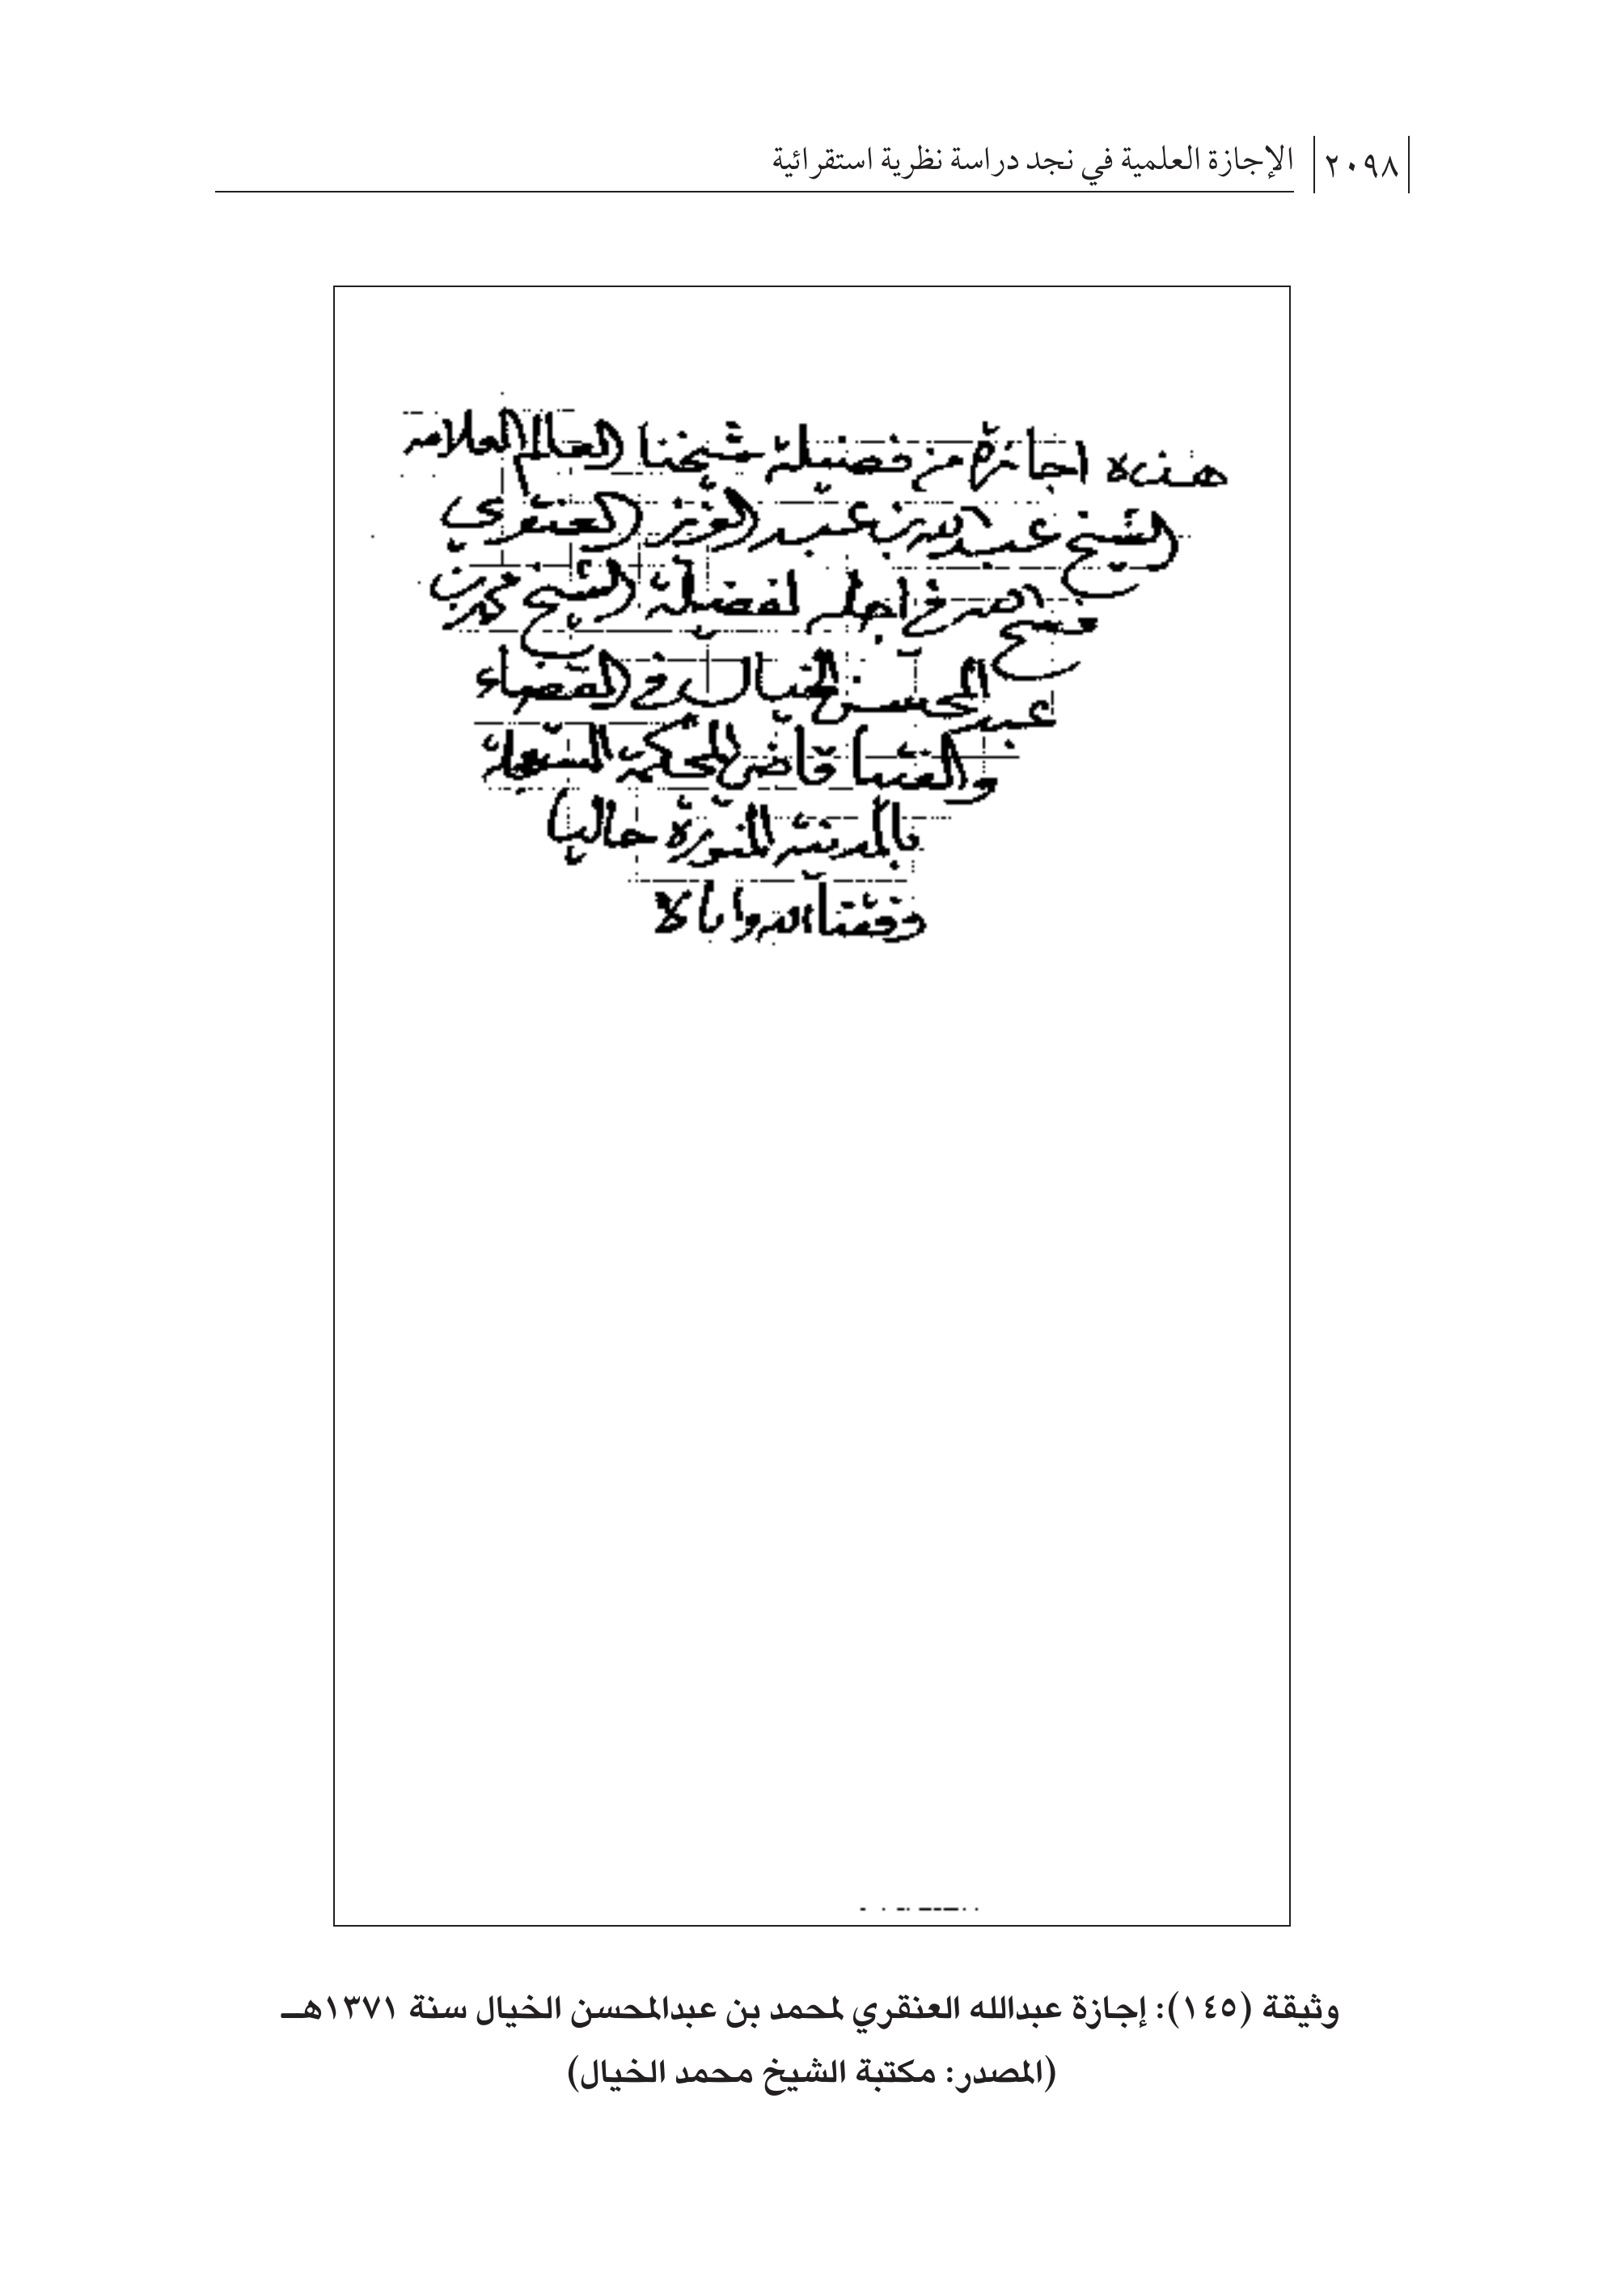 ٢٠٩٨ الإجازة العلمية في نجد دراسة نظرية استقرائية
هذه اجازة من فضيلة شيخنا العالم العلامه
الشيخ عبد الله بن عبد العزيز العنقري
فسح الله في اجله لفضيلة الشيخ محمد بن
عبد المحسن الخيال في القضاء
والفتيا قاضي المحكمة المستعجلة
بالمدينه المنورة حاليا
وفقنا الله واياه
وثيقة (١٤٥): إجازة عبدالله العنقري لمحمد بن عبدالمحسن الخيال سنة ١٣٧١هـ
(المصدر: مكتبة الشيخ محمد الخيال)